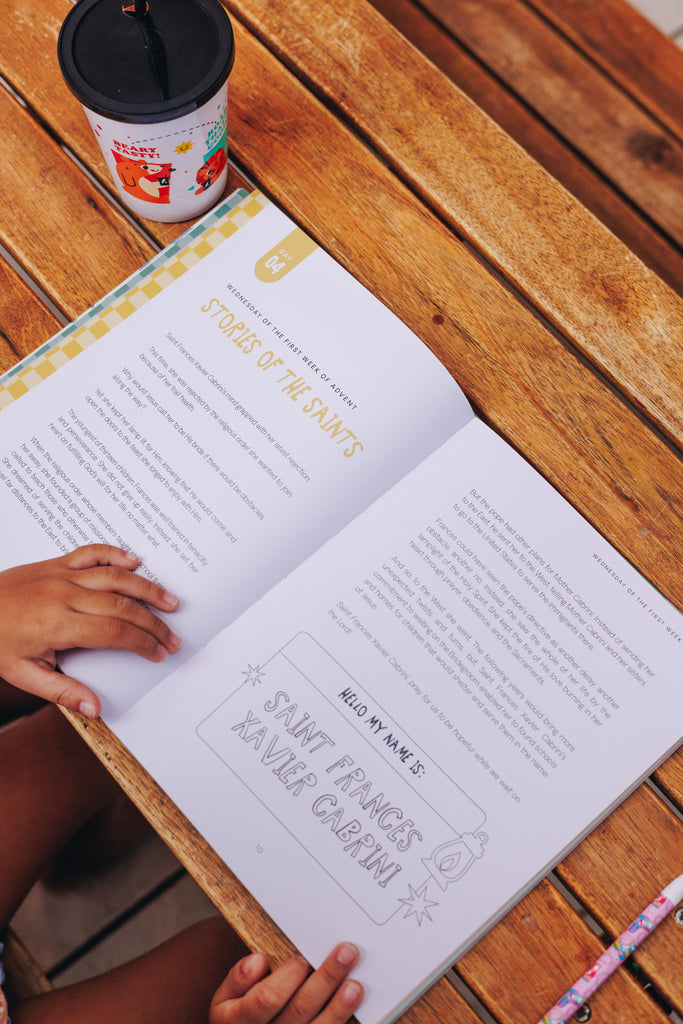 BEARY
TASTY!
DAY
04
WEDNESDAY OF THE FIRST WEEK OF ADVENT
STORIES OF THE SAINTS
Saint Frances Xavier Cabrini's mind grappled with her latest rejection.
This time, she was rejected by the religious order she wanted to join
because of her frail health.
Why would Jesus call her to be His bride if there would be obstacles
along the way?
Yet she kept her lamp lit for Him, knowing that He would come and
open the doors to the feast she longed to enjoy with Him.
The youngest of thirteen children, Frances was well trained in tenacity
and perseverance. She did not give up easily. Instead, she set her
heart on fulfilling God's will for her life no matter what.
When the religious order whose members taught
her away, she founded a group of
called to teach those who otherwise
She dreamed of serving the
far distances to the East to
WEDNESDAY OF THE FIRST WEEK
But the pope had other plans for Mother Cabrini. Instead of sending her
to the East, he sent her to the West, telling Mother Cabrini and her sisters
to go to the United States to serve the immigrants there.
Frances could have seen the pope's directive as another delay, another
obstacle, another no. Instead, she saw the whole of her life by the
lamplight of the Holy Spirit. She kept the fire of His love burning in her
heart through prayer, obedience, and the Sacraments.
And so, to the West she went. The following years would bring more
unexpected twists and turns, but Saint Frances Xavier Cabrini's
commitment to waiting on the Bridegroom enabled her to found schools
and homes for children that would shelter and serve them in the name
of Jesus.
Saint Frances Xavier Cabrini, pray for us to be hopeful while we wait on
the Lord!
HELLO MY NAME IS:
SAINT FRANCES
XAVIER CABRINI
10